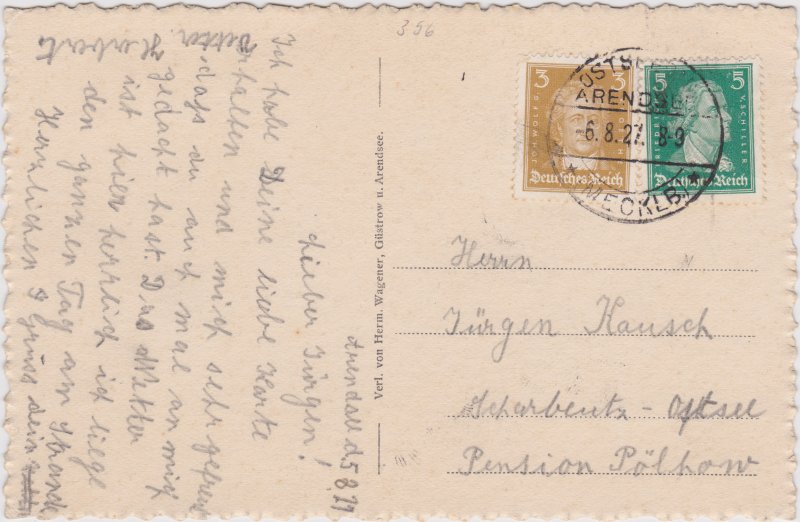 Arendsee d. 5.8.27
Lieber Jürgen!
Ich habe Deine liebe Karte
erhalten und mich sehr gefreut
dass du auch mal an mich
gedacht hast. Das Wetter
ist hier herrlich ich liege
den ganzen Tag am Strande
Herzlichen Gruss dein
Vetter
Herbert
Verl. von Herm. Wagener, Güstrow u. Arendsee.
356
3 3
JOH. WOLFG.
Deutsches Reich
5 5
FRIEDR. V. SCHILLER
Deutsches Reich
OSTSEE
ARENDSEE
-6.8.27. 8-9
* (MECKLB.) *
Herrn
Jürgen Kausch
Scharbeutz - Ostsee
Pension Pölhow